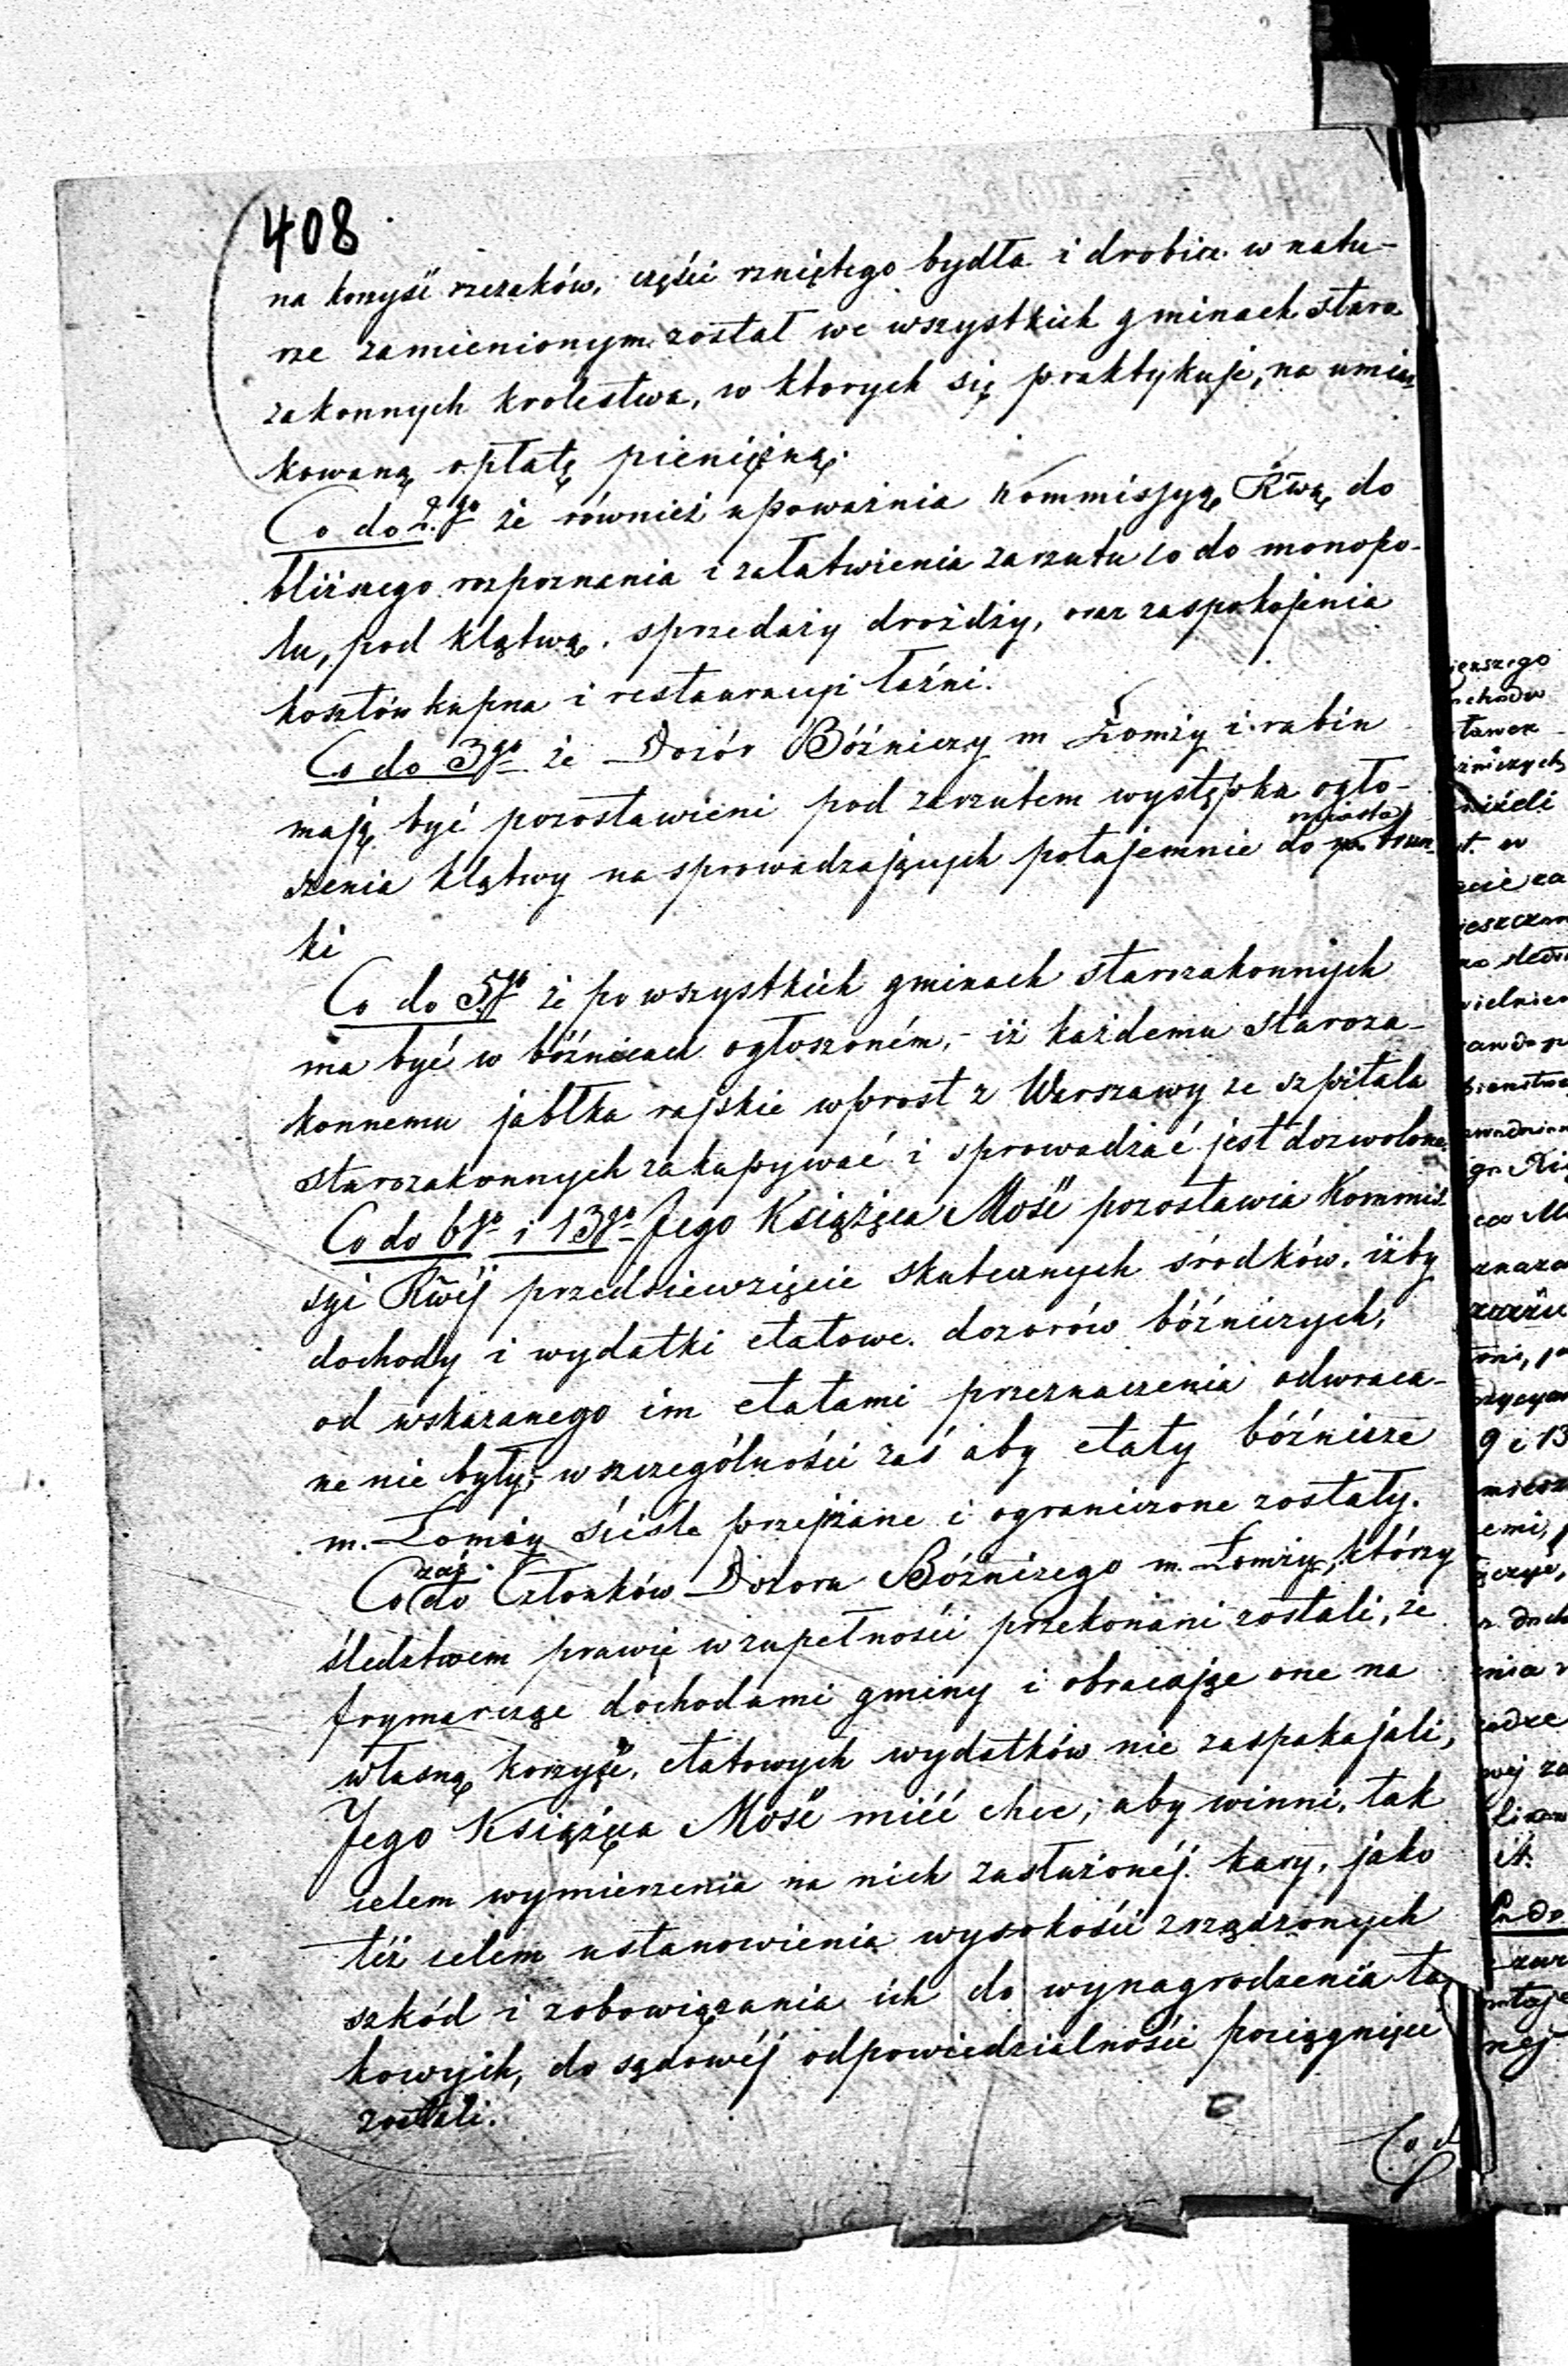 408
na korzyść rzezaków, części rzniętego bydła i drobiu w natu-
rze zamienionym został we wszystkich gminach staro
zakonnych krolestwa, w ktorych się praktykuje, na umiar
kowaną opłatę pieniężną.
Co do 2.go że również upoważnia Kommissyą Rwą do
bliższego rozpoznania i załatwienia zarzutu co do monopo-
lu, pod klątwą, sprzedaży drożdży, oraz zaspokojenia
kosztów kupna i restauracyi łaźni.
Co do 3go że Dozór Bóźniczy m Łomży i rabin
mają być pozostawieni pod zarzutem występku ogło-
miasta
szenia klątwy na sprowadzających potajemnie do trun-
ki
Co do 5go że po wszystkich gminach starozakonnych
ma być w bóźnicach ogłoszoném, - iż każdemu staroza-
konnemu jabłka rajskie wprost z Warszawy ze szpitala
starozakonnych zakupywać i sprowadzać jest dozwolone.
Co do 6go i 13go Jego Książęca Mość pozostawia Kommis-
syi Rwéj przedsiewzięcie skutecznych środków, iżby
dochody i wydatki etatowe dozorów bóźniczych,
od wskazanego im etatami przeznaczenia odwraca-
ne nie były, w szczególności zaś aby etaty bóźnicze
m. Łomży ściśle przejrzane i ograniczone zostały.
zaś
Co do Członków Dozoru Bóżniczego m. Łomży, którzy
śledztwem prawie w zupełności przekonani zostali, że
frymarcząc dochodami gminy i obracając one na
własną korzyść, etatowych wydatków nie zaspakajali,
Jego Książęca Mość mieć chce, aby winni, tak
celem wymierzenia na nich zasłużonéj kary, jako
téż celem ustanowienia wysokości zrządzonych
szkód i zobowiązania ich do wynagrodzenia ta
kowych, do sądowéj odpowiedzialności pociągnięci
zostali.
Co d